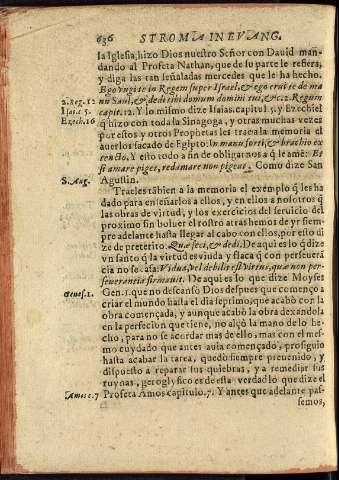 656 STROMA IN EVANG.
la Iglesia, hizo Dios nuestro Señor con Dauid man-
dando al Profeta Nathan, que de su parte le refiera,
y diga las tan señaladas mercedes que le ha hecho.
Ego vngi te in Regem super Israel, & ego erui te de ma
2. Reg. 12 nu Saul, & dedi tibi domum domini tui, &c. 2. Regum
Isai. c. 5. capit. 12. Y lo mismo dize Isaias. capitul. 5. y Ezechiel
Ezech. 16 q̃ hizo con toda la Sinagoga, y otras muchas vezes
por estos y otros Prophetas les trae a la memoria el
auerlos sacado de Egipto: In manu forti, & brachio ex
tento, Y esto todo a fin de obligarnos a q̃ le amẽ: Et
si amare piget, redamare non pigeat. Como dize San
S. Aug. Agustin.
Traeles tãbien a la memoria el exemplo q̃ les ha
dado para enseñarlos a ellos, y en ellos a nosotros q̃
las obras de virtud, y los exercicios del seruicio del
proximo sin boluer el rostro atras hemos de yr siem-
pre adelante hasta llegar al cabo con ellos, por esto di
ze de preterito: Quæ feci, & dedi. De aqui es lo q̃ dize
vn santo q̃ la virtud es viuda y flaca q̃ con perseuerã
cia no se casa: Vidua, vel debilis est virtus, quã non per-
seuerantia firmauit. De aqui es lo que dize Moyses
Genes. 1. Gen. 1. que no descansò Dios despues que començò a
criar el mundo hasta el dia septimo, que acabò con la
obra començada, y aunque acabò la obra dexandola
en la perfecion que tiene, no alçò la mano de lo he-
cho, para no se acordar mas de ello, mas con el mes-
mo cuydado que antes auia començado, prosiguio
hasta acabar la tarea, quedò siempre preuenido, y
dispuesto a reparar sus quiebras, y a remediar sus
ruynas, geroglyfico es de esta verdad lo que dize el
Amos c. 7 Profeta Amos capitulo. 7. Y antes que adelante pas-
semos,